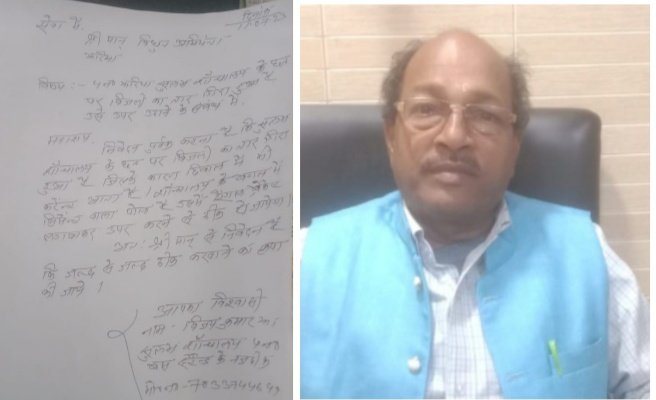 सेवा में,
श्री मान् विधुत अभियंता
विषय :- शौचालय के छत
पर बिजली का तार गिरा हुआ है
उसे उपर करने के संबंध में,
महाशय,
निवेदन पुर्वक कहना है कि सुलभ
शौचालय के छत पर बिजली का तार गिरा
हुआ है जिसके कारण दिवाल में भी
करेन्ट आता है। शौचालय के बगल में
सिमेन्ट वाला पोल है उसमें
लगाकर उपर करने से ठीक हो जायेगा।
अतः श्री मान् से निवेदन है
कि जल्द से जल्द ठीक करवाने की कृपा
की जाये।
आपका विश्वासी
नाम - विजय कुमार झा
सुलभ शौचालय
बस स्टैण्ड के नजदीक